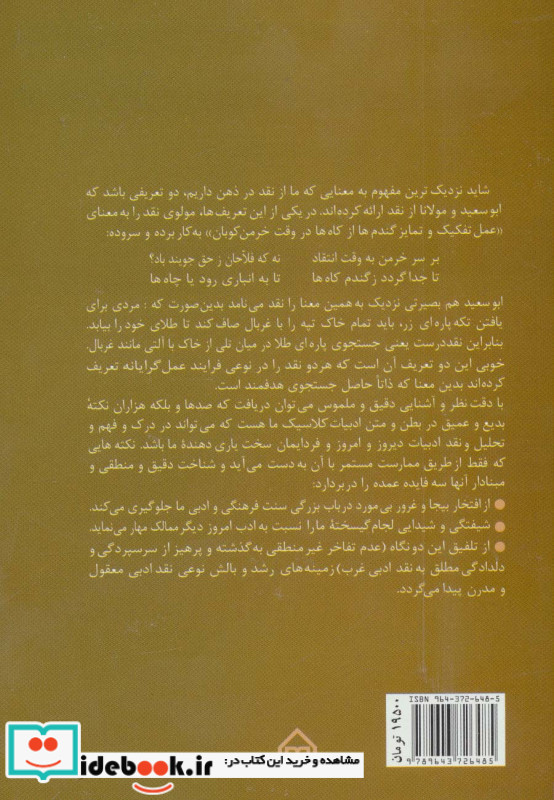 شاید نزدیک ترین مفهوم به معنایی که ما از نقد در ذهن داریم، دو تعریفی باشد که
ابوسعید و مولانا از نقد ارائه کرده‌اند. در یکی از این تعریف‌ها، مولوی نقد را به معنای
«عمل تفکیک و تمایز گندم ها از کاه ها در وقت خرمن‌کوبان» به‌کار برده و سروده:
بر سر خرمن به وقت انتقاد نه که فلاّحان ز حق جویند باد؟
تا جدا گردد ز گندم کاه ها تا به انباری رود یا چاه ها
ابوسعید هم بصیرتی نزدیک به همین معنا را نقد می‌نامد بدین‌صورت که : مردی برای
یافتن تکه پاره ای زر، باید تمام خاک تپه را با غربال صاف کند تا طلای خود را بیابد.
بنابراین نقددرست یعنی جستجوی پاره ای طلا در میان تلی از خاک با آلتی مانند غربال.
خوبی این دو تعریف آن است که هر دو نقد را در نوعی فرایند عمل‌گرایانه تعریف
کرده‌اند بدین معنا که ذاتاً حاصل جستجوی هدفمند است.
با دقت نظر و آشنایی دقیق و ملموس می‌توان دریافت که صدها و بلکه هزاران نکتهٔ
بدیع و عمیق در بطن و متن ادبیات کلاسیک ما هست که می‌تواند در درک و فهم و
تحلیل و نقد ادبیات دیروز و امروز و فردایمان سخت یاری دهندهٔ ما باشد. نکته هایی
که فقط از طریق ممارست مستمر با آن به دست می‌آید و شناخت دقیق و منطقی و
مبنادار آنها سه فایده عمده را دربردارد:
● از افتخار بیجا و غرور بی‌مورد درباب بزرگی سنت فرهنگی و ادبی ما جلوگیری می‌کند.
● شیفتگی و شیدایی لجام‌گیسختهٔ ما را نسبت به ادب امروز دیگر ممالک مهار می‌نماید.
● از تلفیق این دو نگاه (عدم تفاخر غیرمنطقی به گذشته و پرهیز از سرسپردگی و
دلدادگی مطلق به نقد ادبی غرب) زمینه‌های رشد و بالش نوعی نقد ادبی معقول
و مدرن پیدا می‌گردد.
ISBN 964-372-648-5
9789643726485
۱۹۵۰۰ تومان
مشاهده و خرید این کتاب در:
idebook.ir